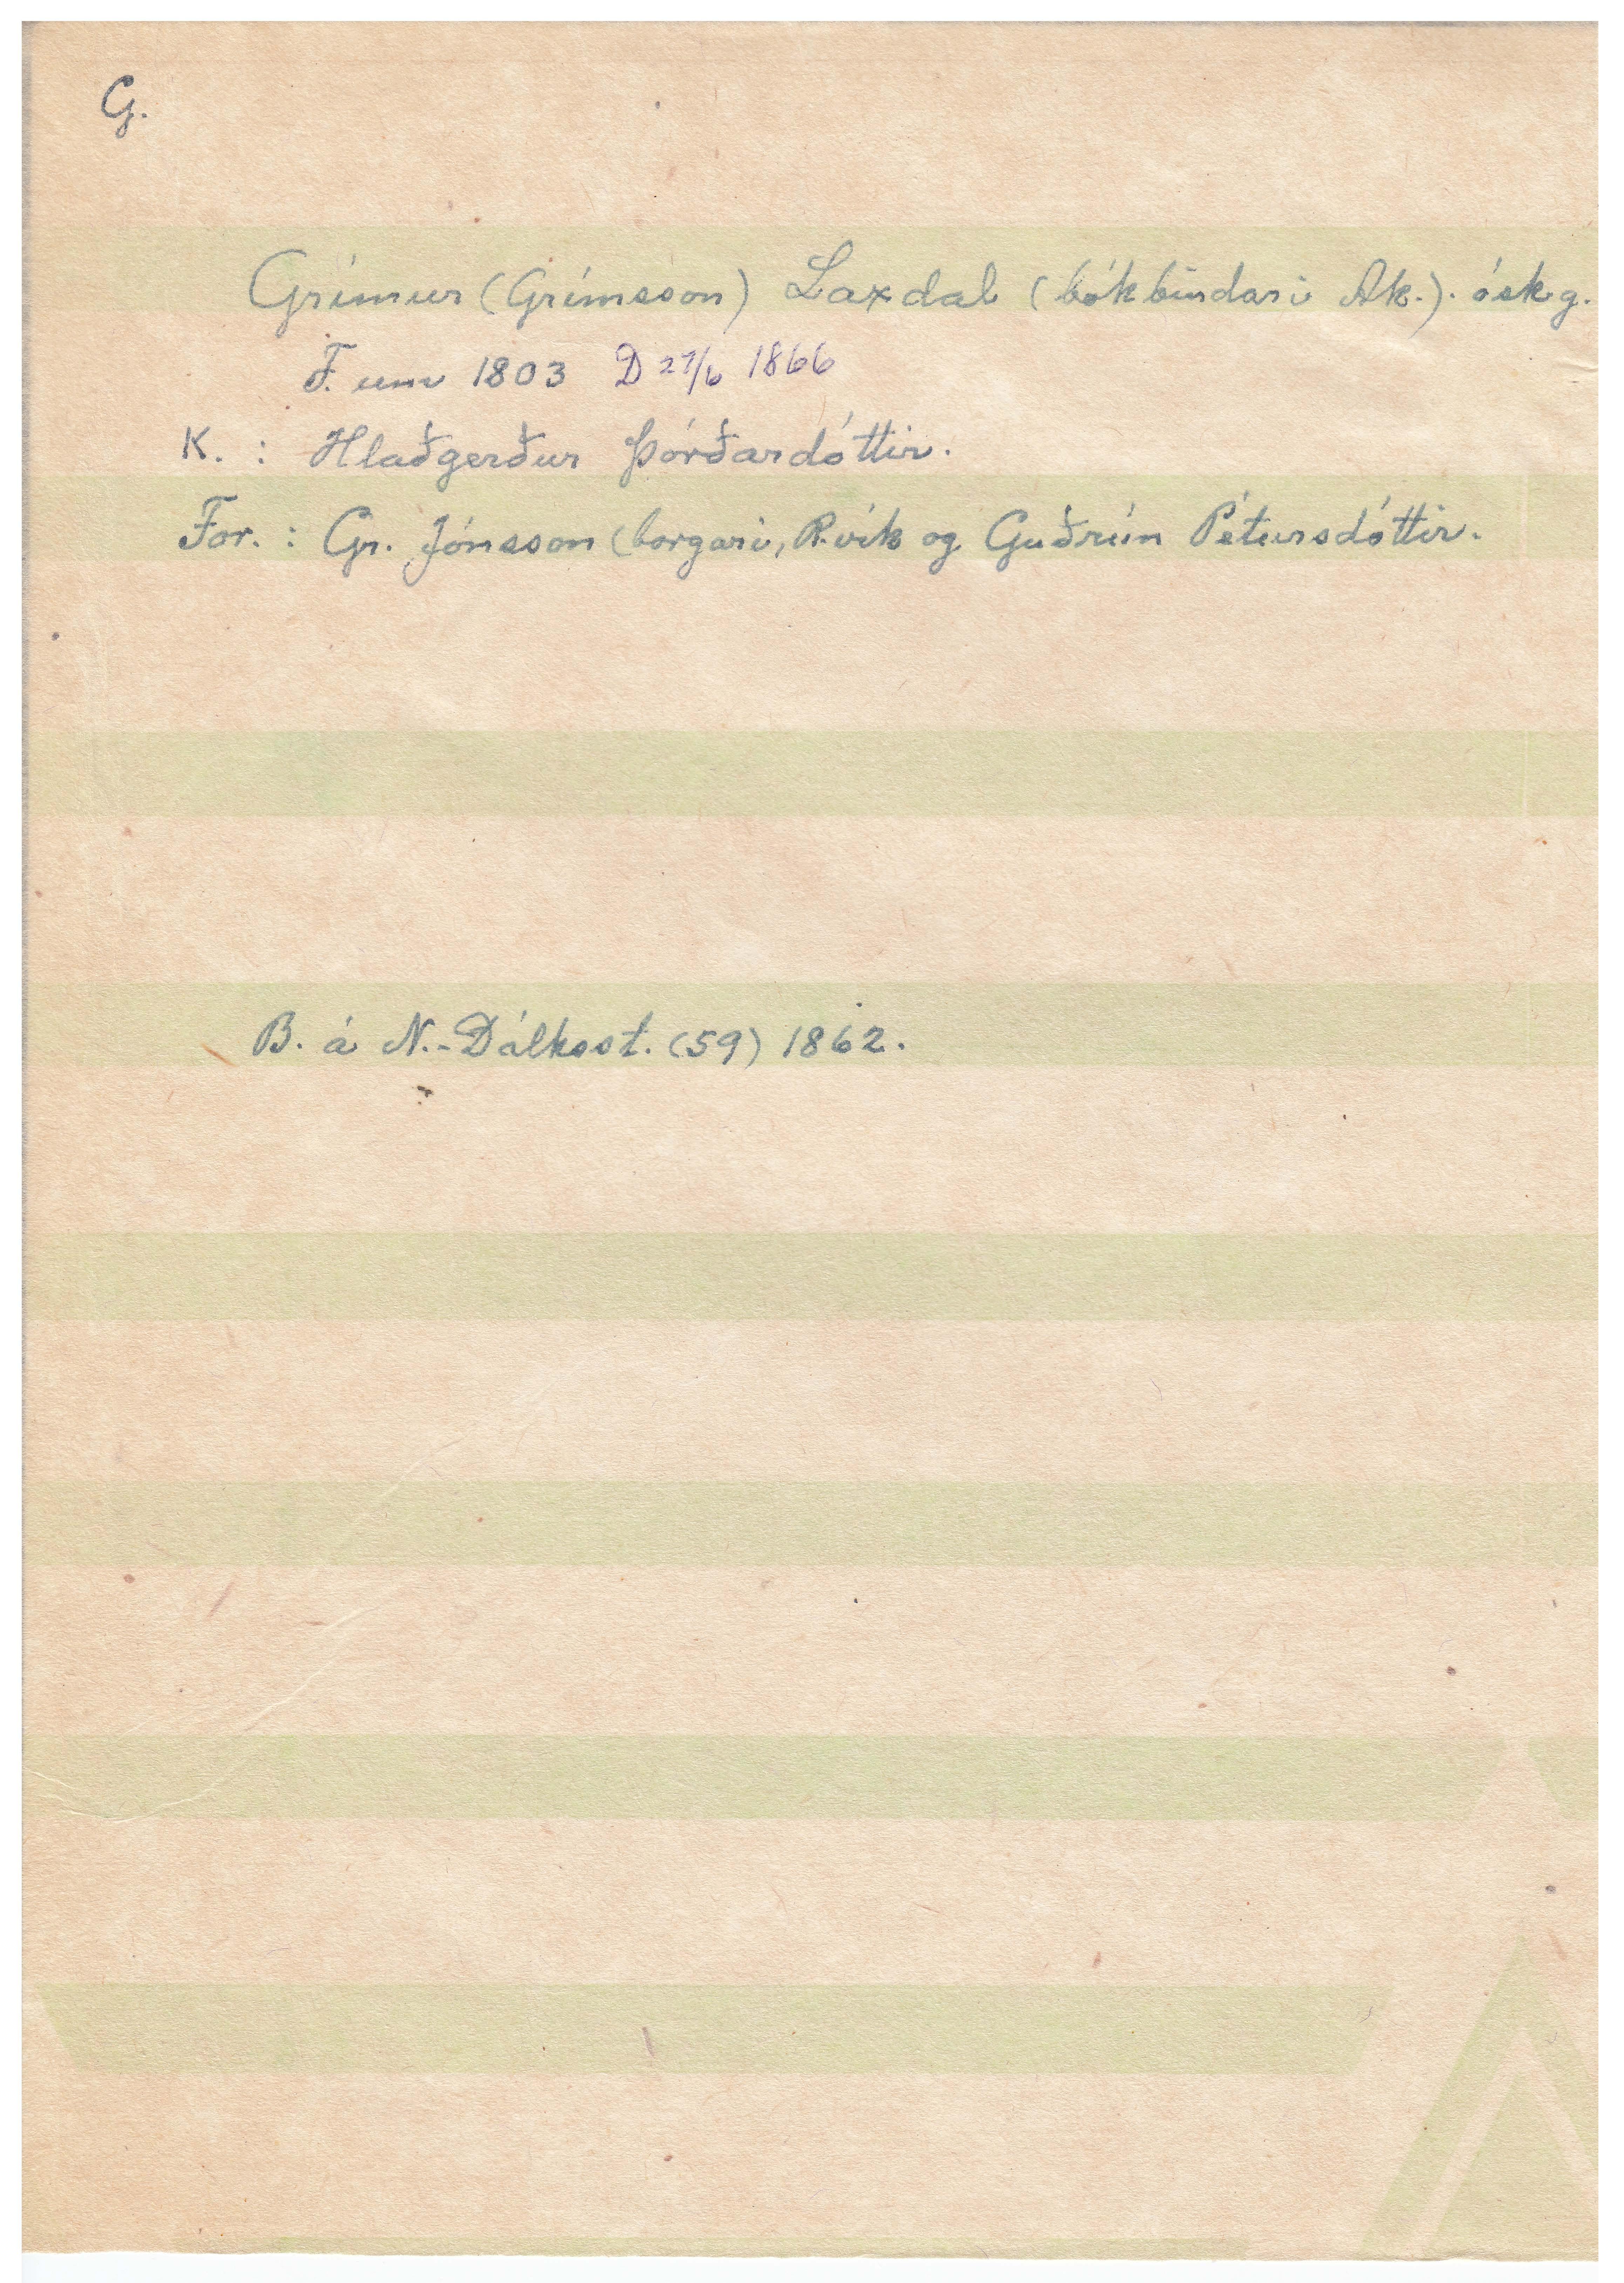 G.
Grímur (Grímsson) Laxdal (bókbindari Ak.). ósk.g.
F. um 1803 D 27/6 1866
K. : Hlaðgerður Þórðardóttir.
For. : Gr. Jónsson (borgari, R.vík og Guðrún Pétursdóttir.
B. á N.-Dálksst. (59) 1862.